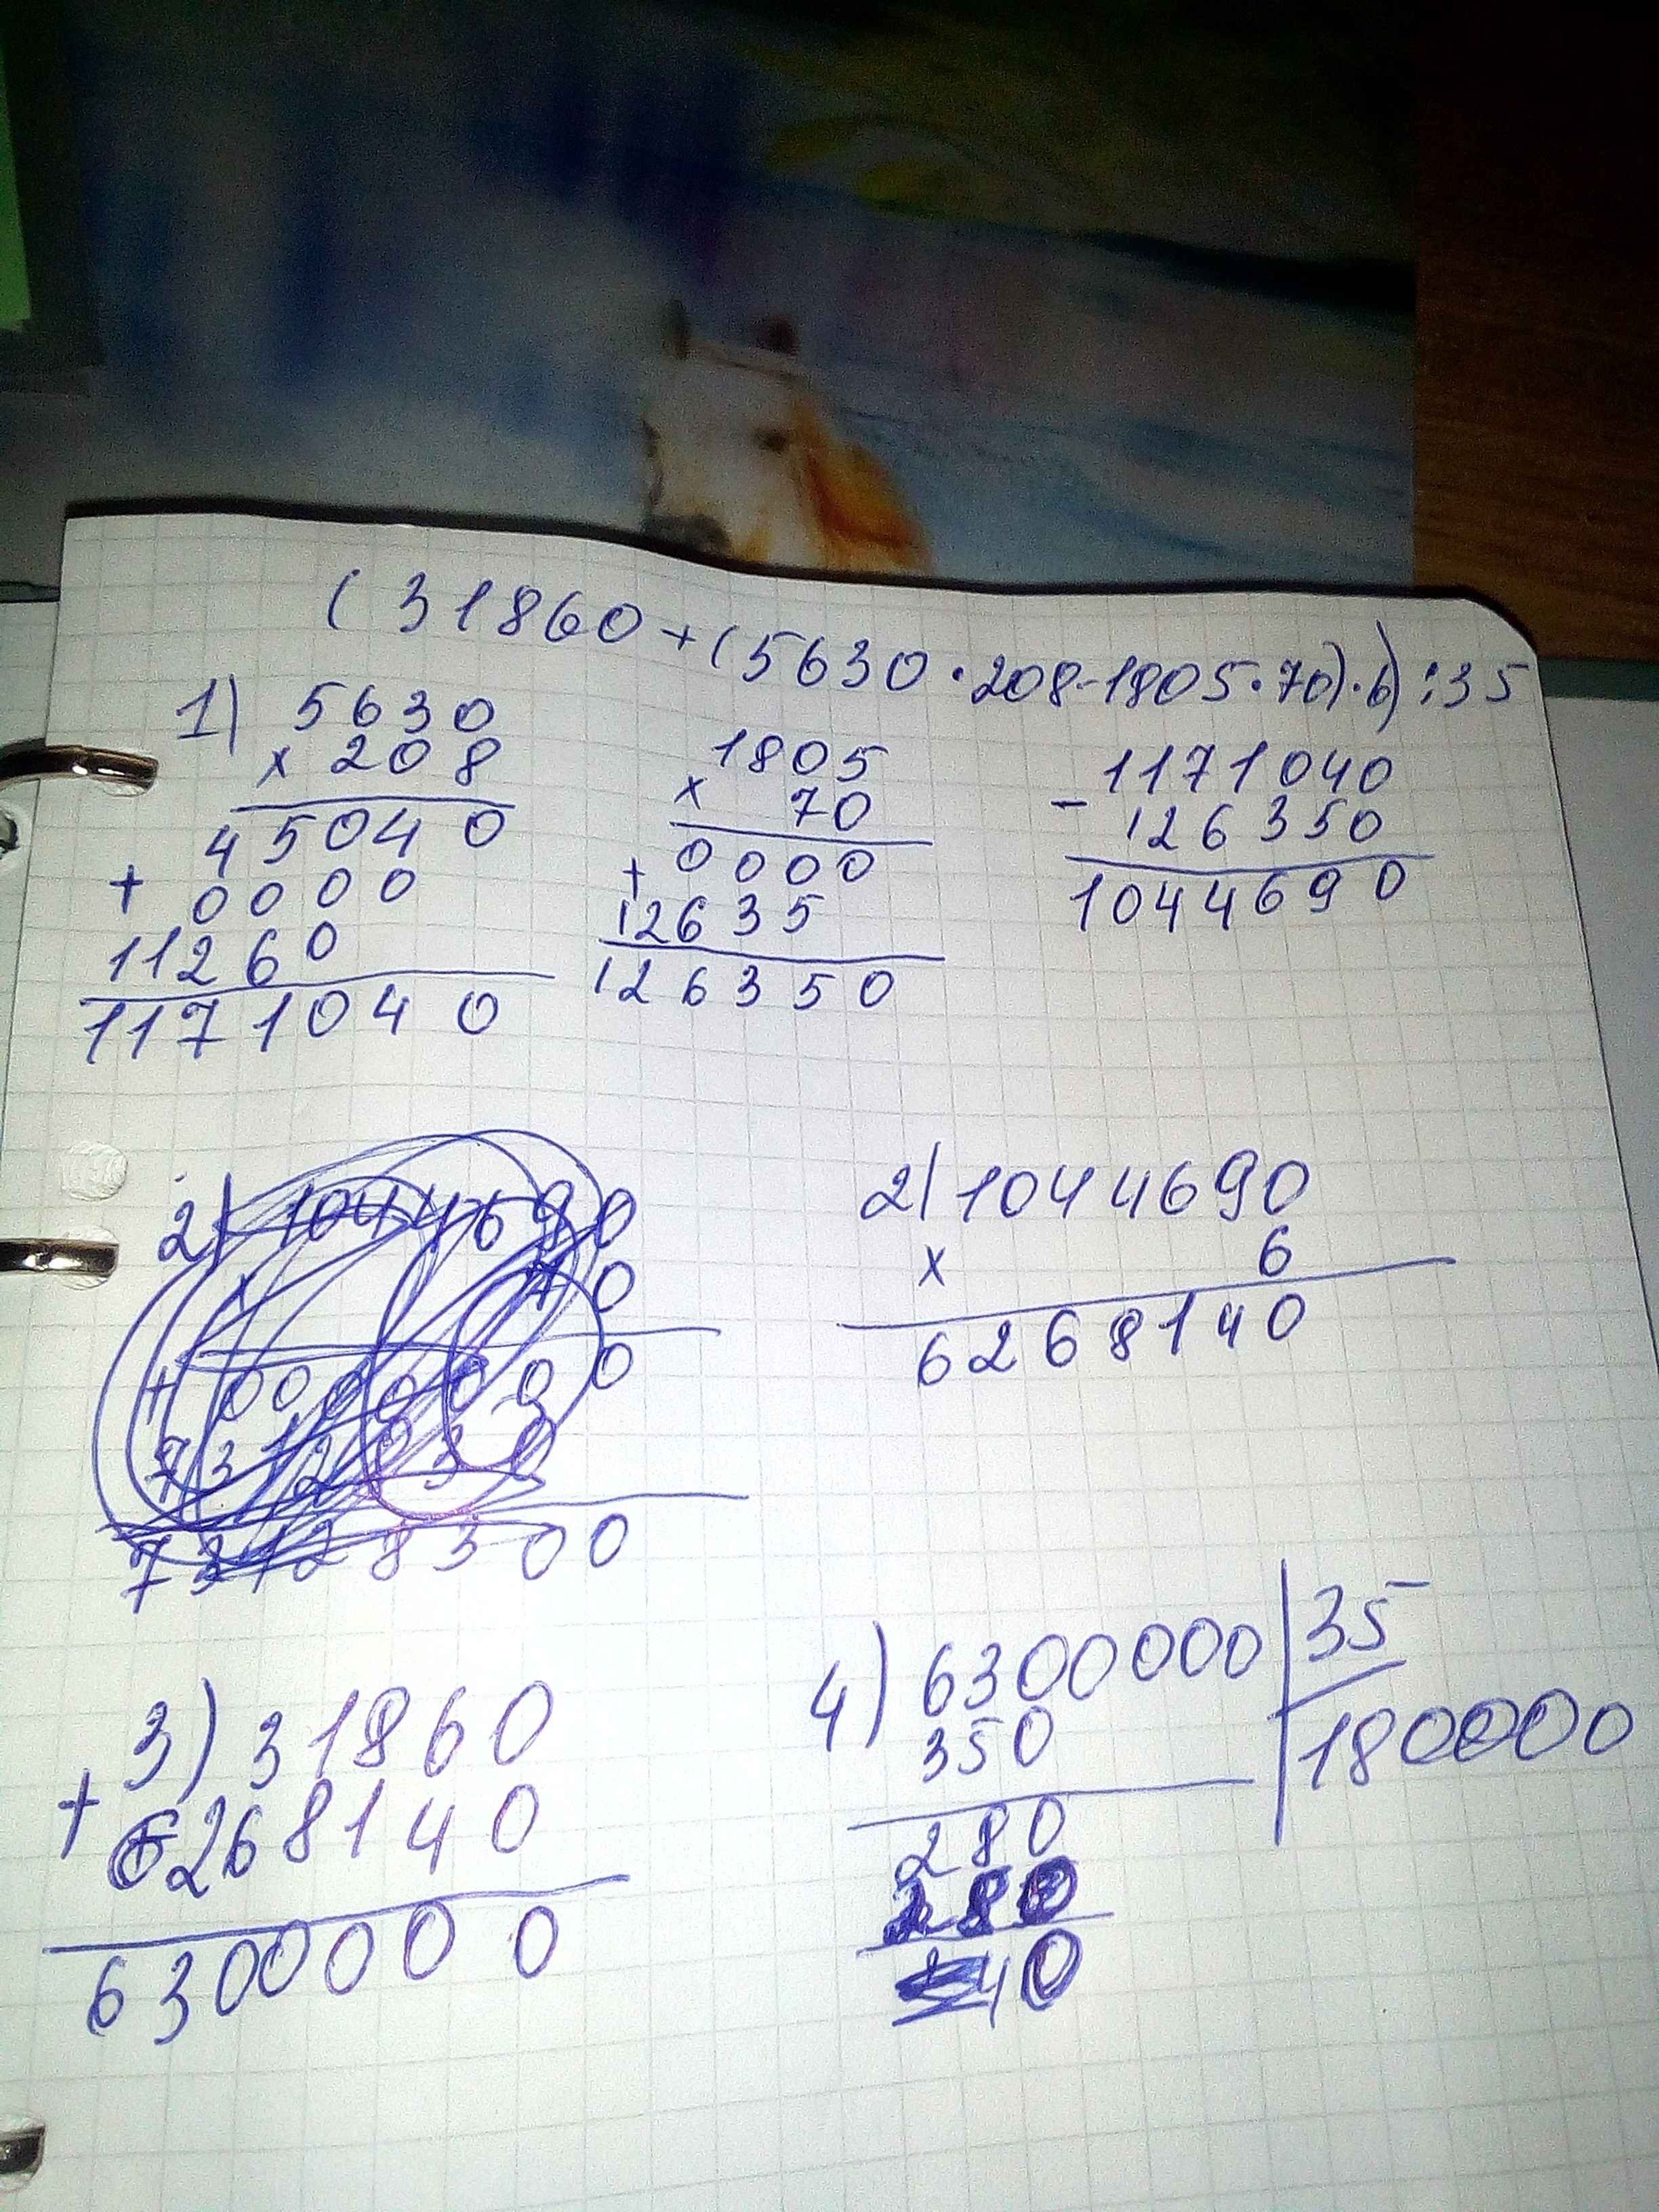 (31860+(5630·208-1805·70)·6):35
1) 5630
× 208
45040
+ 0000
11260
1171040
1805
× 70
+ 0000
12635
126350
- 1171040
126350
1044690
2) 1044690
× 70
+ 0000000
73128300
2) 1044690
× 6
6268140
3) 31860
+ 6268140
6300000
4) 6300000 35
350 180000
280
280
40